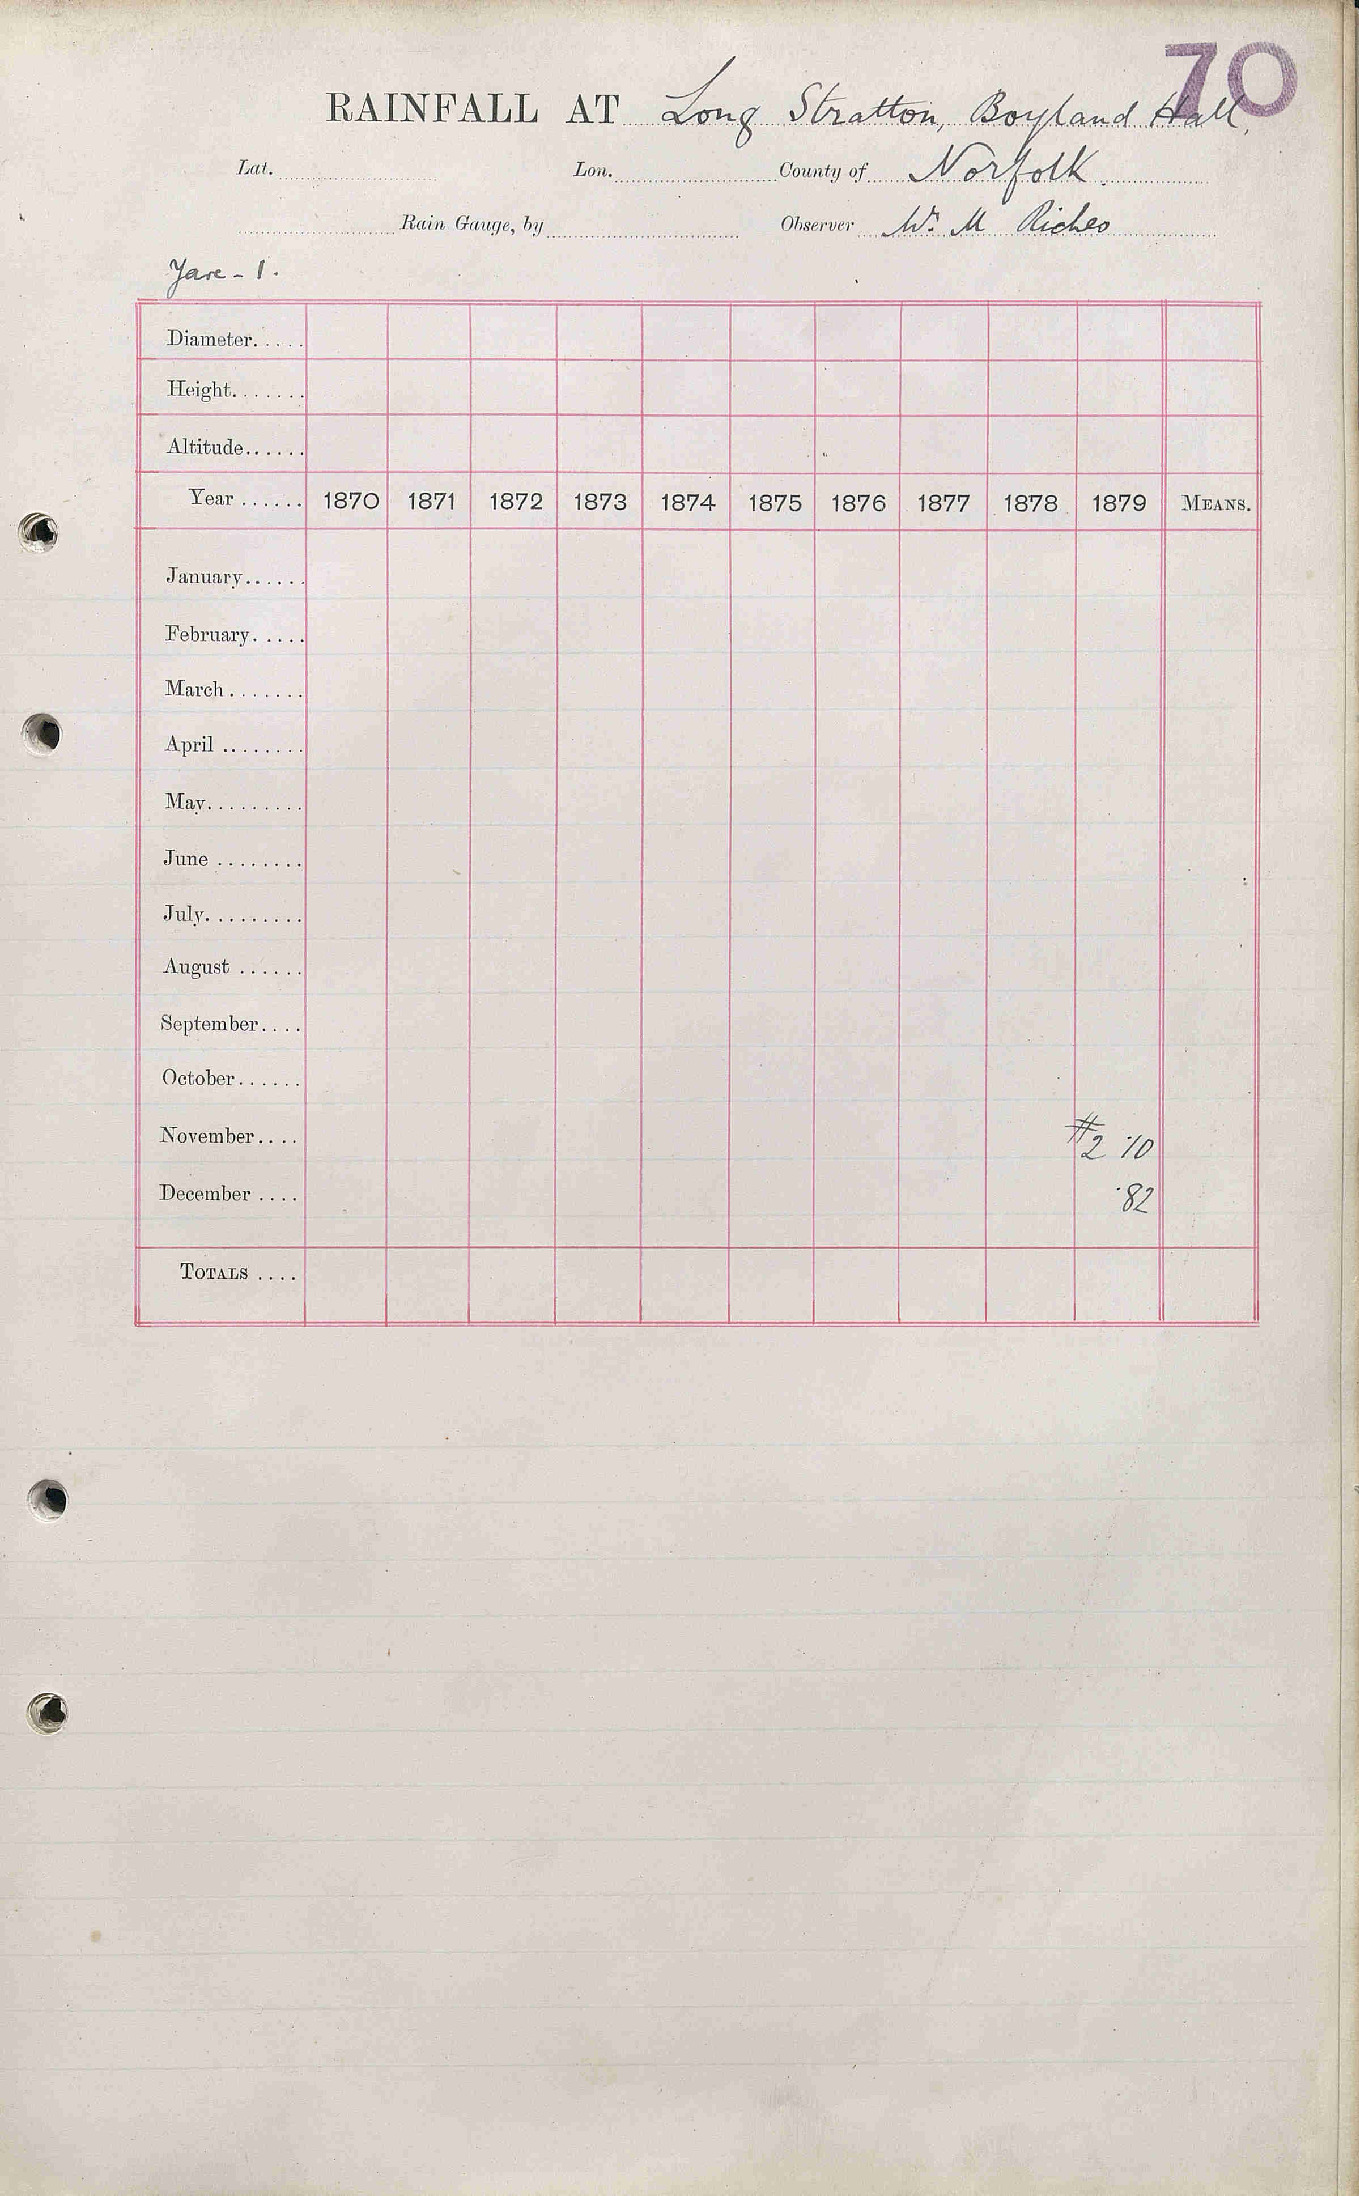 70
RAINFALL AT Long Stratton, Boyland Hall,
Lat. Lon. County of Norfolk.
Rain Gauge, by Observer Wm. M Riches
Yare - 1.
Diameter.....
Height.......
Altitude......
Year ...... 1870 1871 1872 1873 1874 1875 1876 1877 1878 1879 MEANS.
January......
February.....
March.......
April ........
May.........
June ........
July.........
August ......
September....
October......
November.... #2 ·10
December .... ·82
TOTALS ....